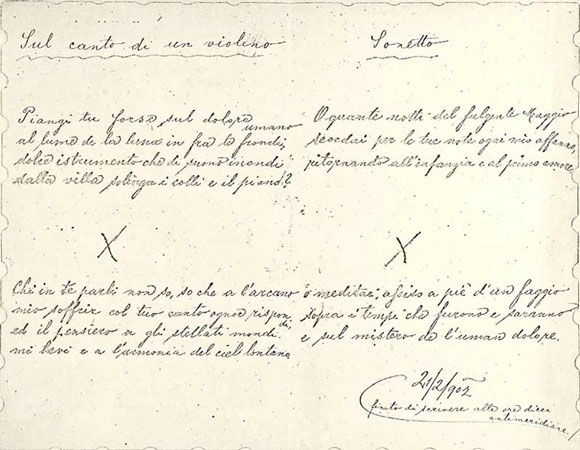 Sul canto di un violino
Piangi tu forse sul dolore umano
al lume de la luna in fra le frondi,
dolce istrumento che di suono inondi
dalla villa solinga i colli e il piano?
X
Chi in te parli non so, so che a l'arcano
mio soffrir col tuo canto ognor rispondi,
ed il pensiero a gli stellati mondi
mi levi e a l'armonia del ciel lontana
Sonetto
O quante notti del fulgente Maggio
scordai per le tue note ogni mio affanno,
ritornando all'infanzia e al primo amore,
X
o meditai, assiso a piè d'un faggio
sopra i tempi che furono e saranno
e sul mistero de l'uman dolore.
21/2/902
finito di scrivere alle ore dieci
antimeridiane.